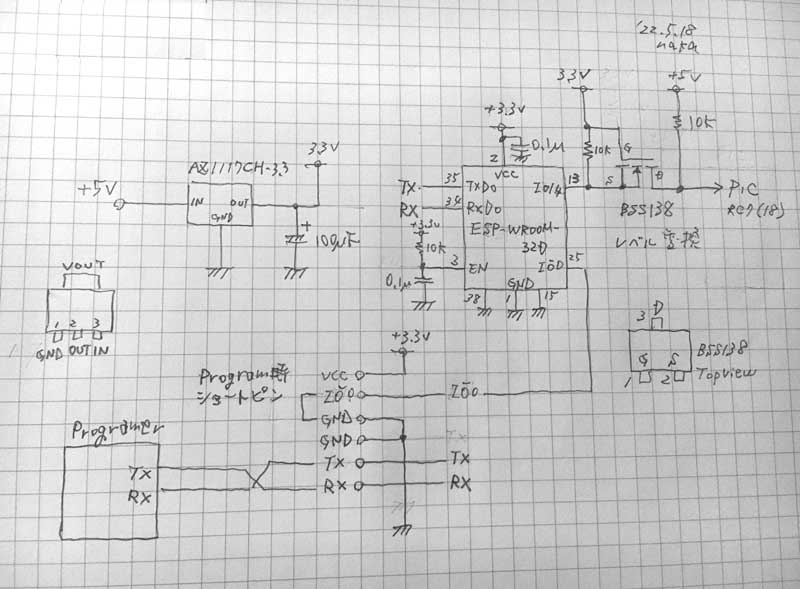 '22.5.18
naka
3.3V
+5V
10K
+3.3V
0.1μ
10K
G
S
D
BSS138
レベル変換
PIC
RC7(18)
AZ1117CH-3.3
3.3V
+5V
IN
OUT
GND
+
100μF
2
VCC
TX
35
TXD0
RX
34
RXD0
IO14
13
ESP-WROOM-
32D
+3.3V
10K
3
EN
IO0
25
GND
0.1μ
38
1
15
VOUT
1
2
3
GND
OUT
IN
+3.3V
Program時
ショートピン
VCC
IO0
IO0
GND
GND
TX
TX
RX
RX
Programer
TX
RX
3
D
G
S
1
2
BSS138
Topview